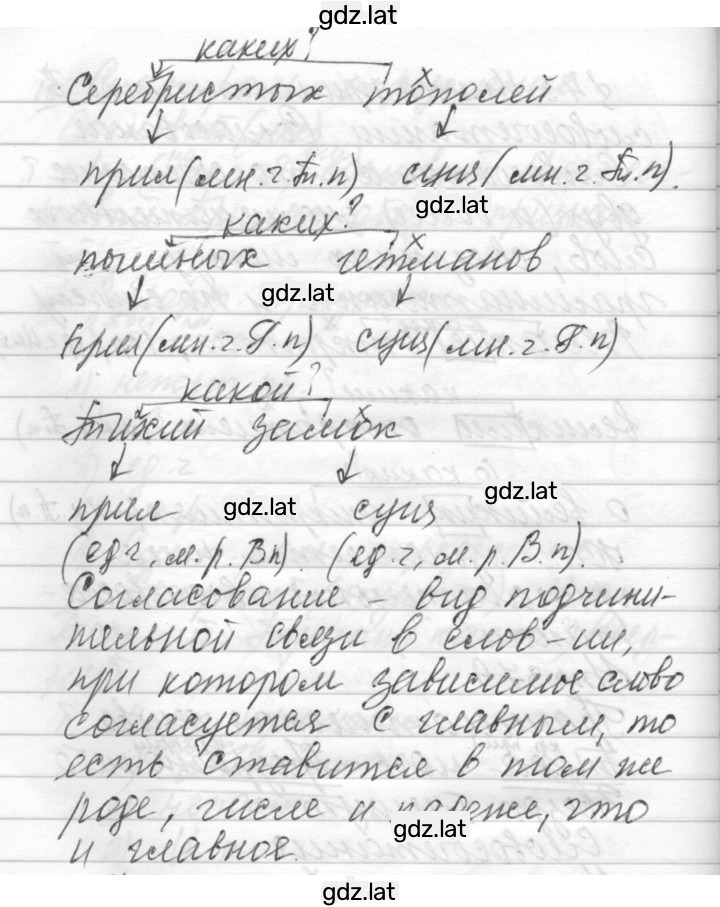 gdz.lat
каких?
Серебристых тополей
прил (мн.ч. Р.п) сущ (мн.ч. Р.п).
gdz.lat
каких?
пышных гетманов
gdz.lat
прил (мн.ч. Р.п) сущ (мн.ч. Р.п)
какой?
Тихий замок
gdz.lat
прил gdz.lat сущ
(ед ч, м.р. Вп). (ед.ч, м.р. В.п).
Согласование – вид подчини-
тельной связи в слов-ии,
при котором зависимое слово
согласуется с главным, то
есть ставится в том же
роде, числе и падеже, что
gdz.lat
и главное.
gdz.lat